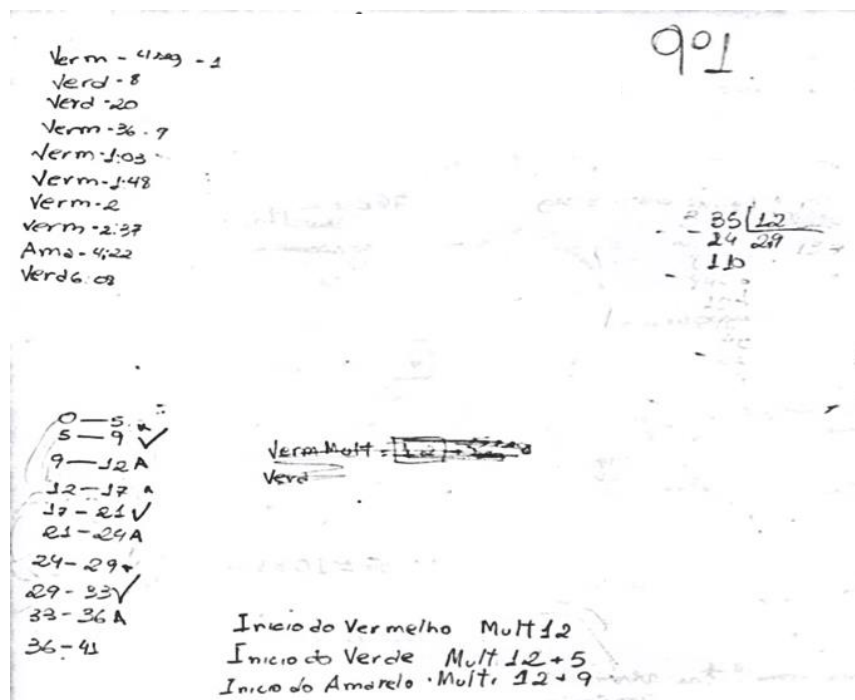 9º1
Verm - 4seg - 1
Verd - 8
Verd - 20
Verm - 36 - 9
Verm - 1:03 -
Verm - 1:48
Verm - 2
Verm - 2:37
Ama - 4:22
Verd 6:08
35 12
24 29
110
0 — 5
5 — 9 ✓
9 — 12 A
12 — 17
17 — 21 ✓
21 — 24 A
24 — 29
29 - 33 ✓
33 - 36 A
36 - 41
Verm Mult =
Verd
Inicio do Vermelho Mult 12
Inicio do Verde Mult 12 + 5
Inicio do Amarelo . Mult. 12 + 9